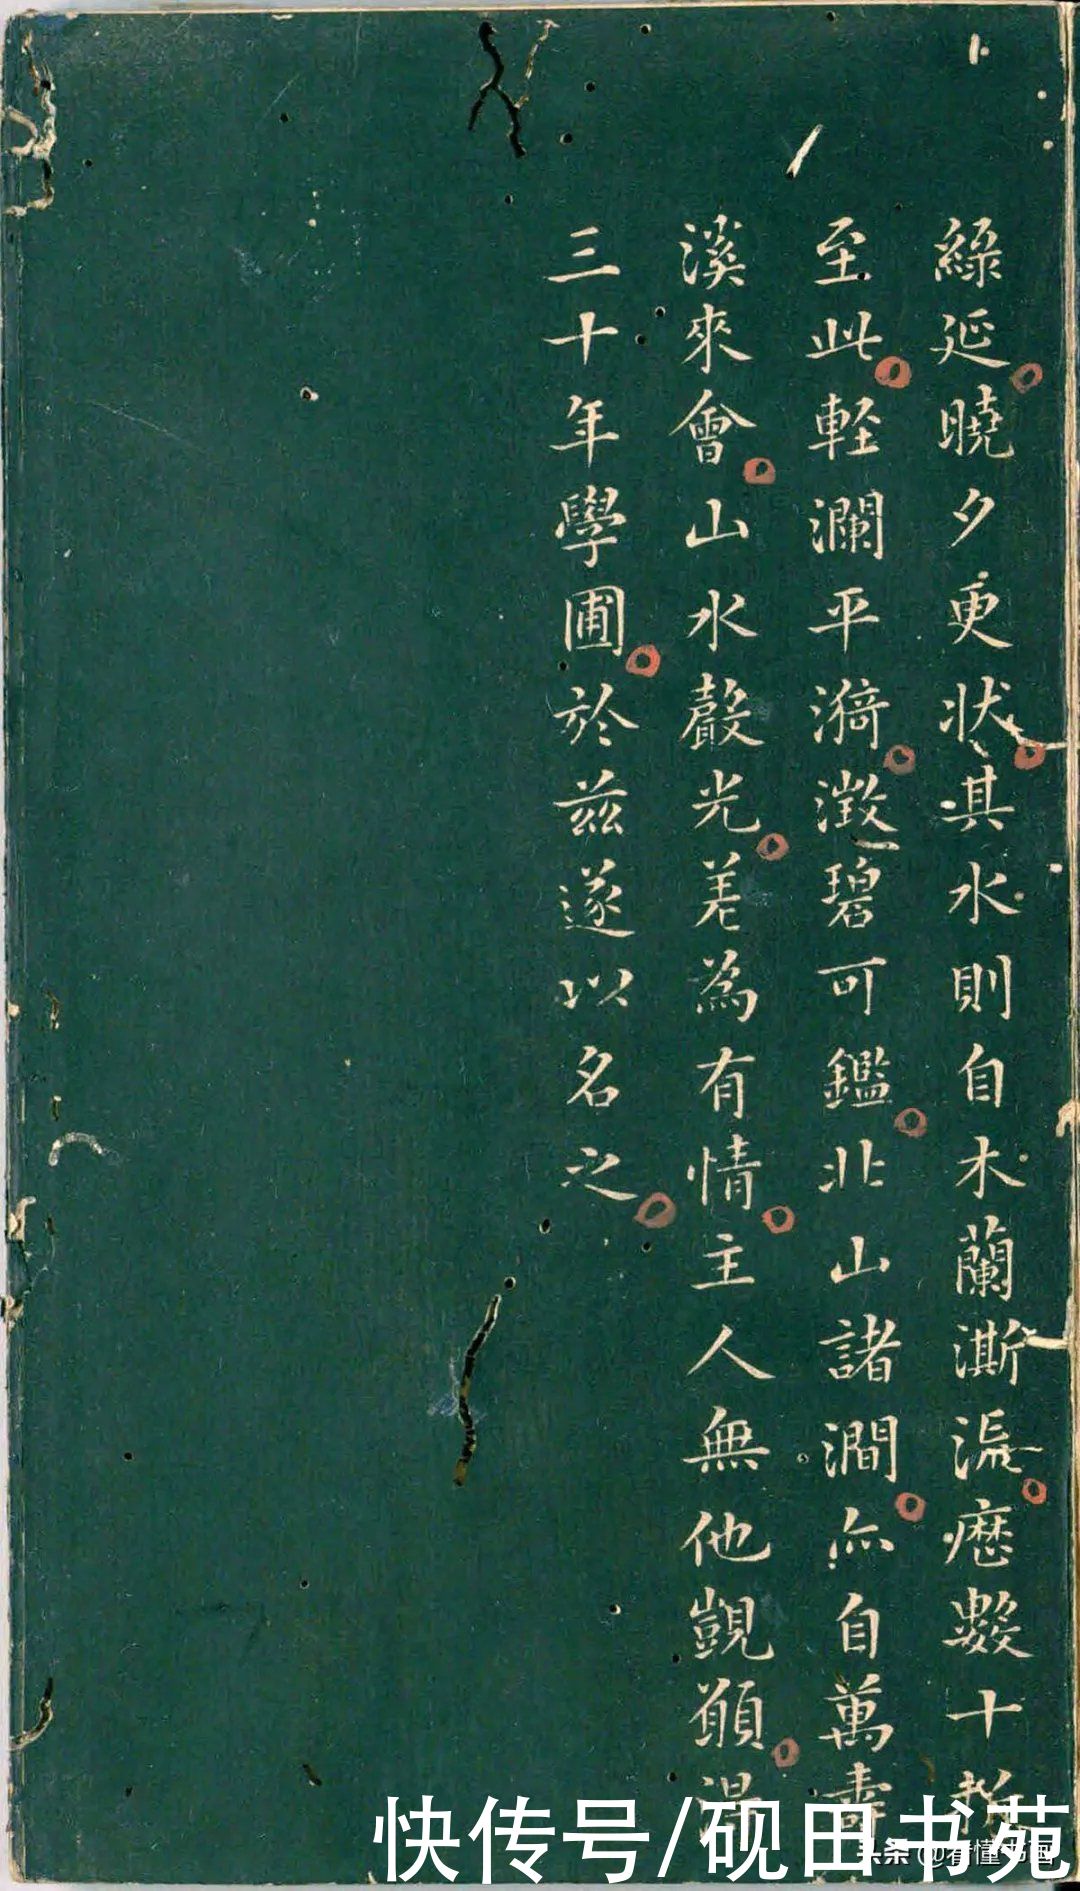 綿延曉夕更状其水則自木蘭澌流歷數十折
至此輕瀾平漪澂碧可鑑北山諸澗亦自萬壽
溪來會山水聲光差為有情主人無他覬願得
三十年學圃於茲遂以名之
快传号/砚田书苑
头条 @看懂书画